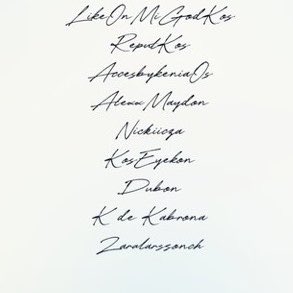 LikeOnMiGodKos
RepudKos
AccesbykeniaOs
Alexx Maydon
Nickiicza
KosEyekon
Dubon
K de Kabrona
Zaralarssonch